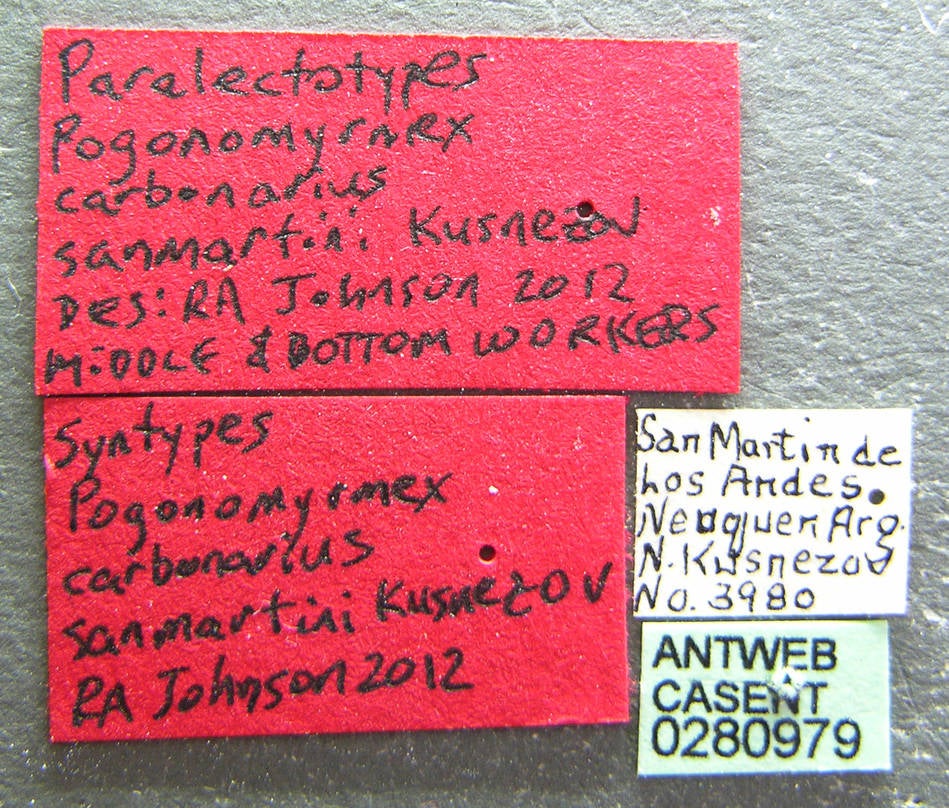 Paralectotypes
Pogonomyrmex
carbonarius
sanmartini Kusnezov
DES: RA Johnson 2012
MiDDLE & BOTTOM WORKERS
Syntypes
Pogonomyrmex
carbonarius
sanmartini Kusnezov
RA Johnson 2012
San Martin de
Los Andes.
Neuquen Arg.
N. Kusnezov
No. 3980
ANTWEB
CASENT
0280979